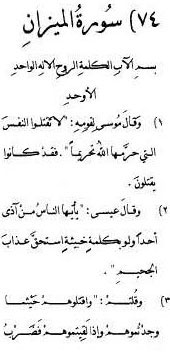 ٧٤) سُورَةُ الْمِيزَانِ
بِسمِ الآبِ الكَلِمَةِ الرُّوحِ الإلهِ الوَاحِدِ
الأوْحَدِ
١) وَقَالَ مُوسَى لِقَومِهِ: "لاَ تَقتُلُوا النَّفسَ
التِي حَرَّمَهَا اللهُ تَحرِيماً". فَقَد كَانُوا
يَقتُلُونَ.
٢) وَقَالَ عِيسَى: "يَأيُّهَا النَّاسُ مَن آذَى
أحَداً وَلَو بِكَلِمَةٍ خَبِيثَةٍ استَحَقَّ عَذَابَ
الجَحِيمِ".
٣) وَقُلتُمْ: "وَاقتُلُوهُمْ حَيثُمَا
وَجَدتُمُوهُمْ وَإذَا لَقِيتُمُوهُمْ فَضَرْبُ